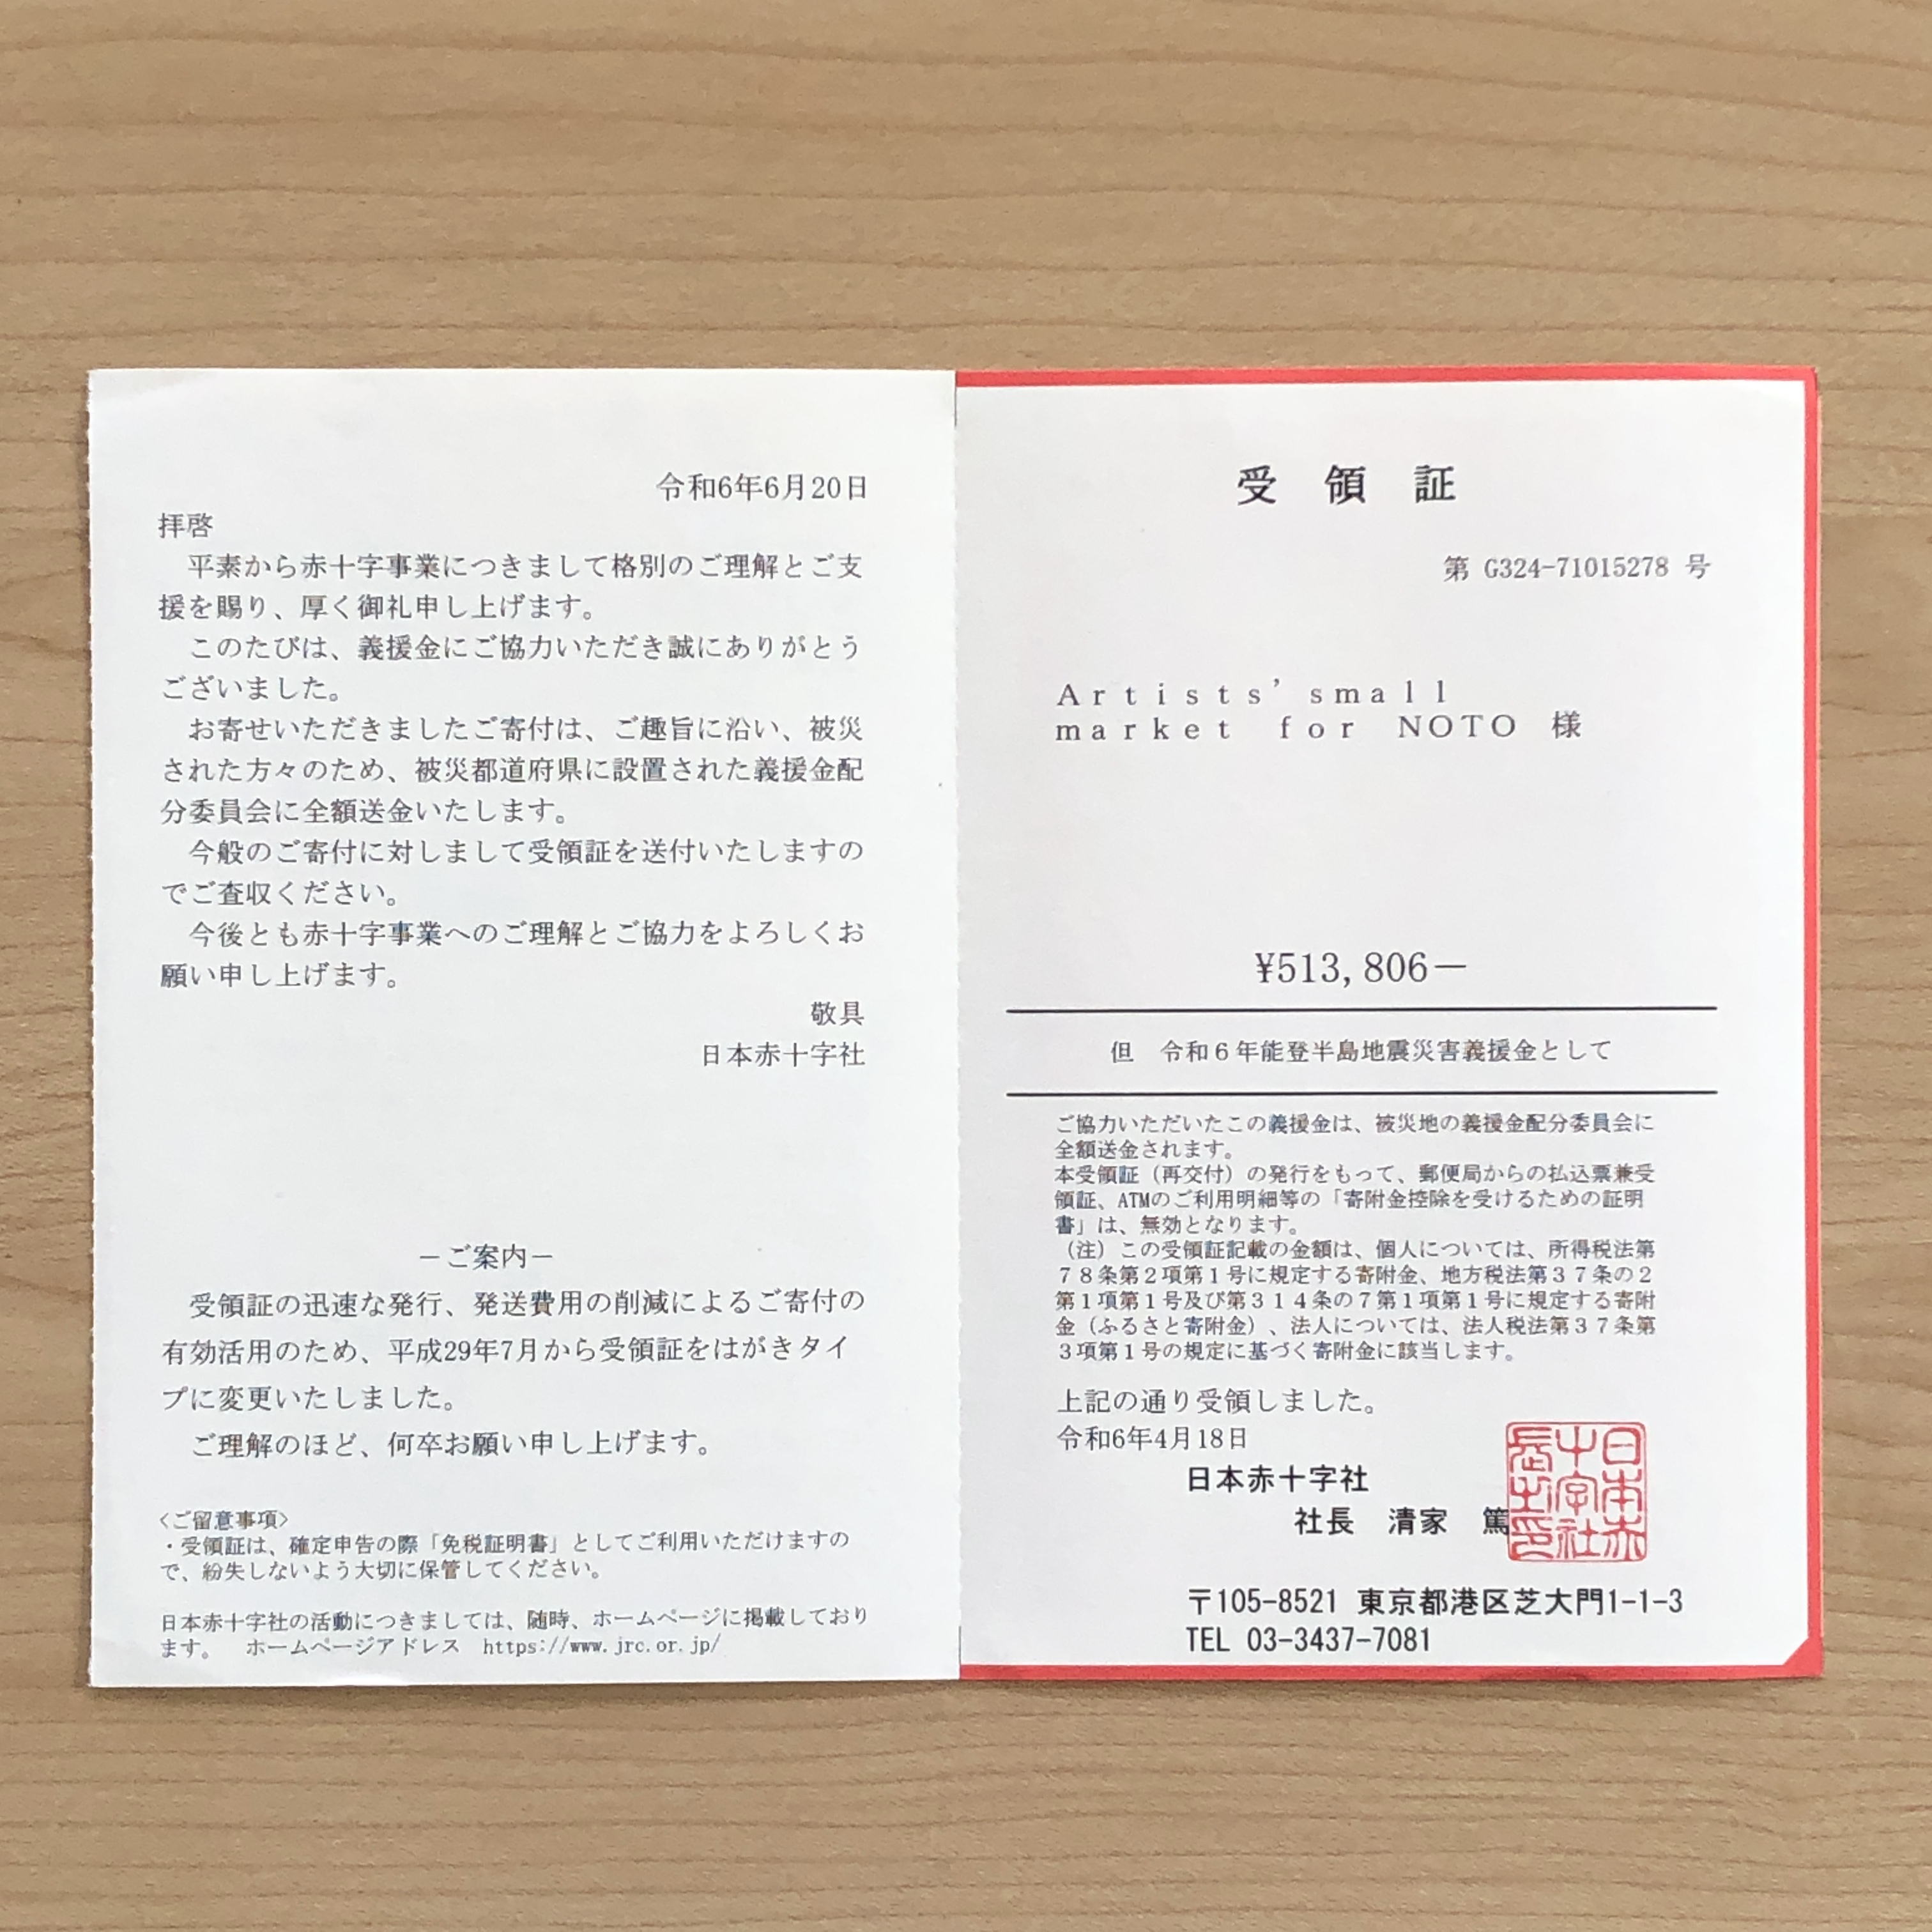 令和6年6月20日
拝啓
　平素から赤十字事業につきまして格別のご理解とご支
援を賜り、厚く御礼申し上げます。
　このたびは、義援金にご協力いただき誠にありがとう
ございました。
　お寄せいただきましたご寄付は、ご趣旨に沿い、被災
された方々のため、被災都道府県に設置された義援金配
分委員会に全額送金いたします。
　今般のご寄付に対しまして受領証を送付いたしますの
でご査収ください。
　今後とも赤十字事業へのご理解とご協力をよろしくお
願い申し上げます。
敬具
日本赤十字社
－ご案内－
　受領証の迅速な発行、発送費用の削減によるご寄付の
有効活用のため、平成29年7月から受領証をはがきタイ
プに変更いたしました。
　ご理解のほど、何卒お願い申し上げます。
〈ご留意事項〉
・受領証は、確定申告の際「免税証明書」としてご利用いただけますの
で、紛失しないよう大切に保管してください。
日本赤十字社の活動につきましては、随時、ホームページに掲載しており
ます。　ホームページアドレス　https://www.jrc.or.jp/
受　領　証
第 G324-71015278 号
Artists’small
market for NOTO 様
¥513,806－
但　令和６年能登半島地震災害義援金として
ご協力いただいたこの義援金は、被災地の義援金配分委員会に
全額送金されます。
本受領証（再交付）の発行をもって、郵便局からの払込票兼受
領証、ATMのご利用明細等の「寄附金控除を受けるための証明
書」は、無効となります。
（注）この受領証記載の金額は、個人については、所得税法第
７８条第２項第１号に規定する寄附金、地方税法第３７条の２
第１項第１号及び第３１４条の７第１項第１号に規定する寄附
金（ふるさと寄附金）、法人については、法人税法第３７条第
３項第１号の規定に基づく寄附金に該当します。
上記の通り受領しました。
令和6年4月18日
日本赤十字社
社長　清家　篤
日本赤
十字社
長之印
〒105-8521 東京都港区芝大門1-1-3
TEL 03-3437-7081